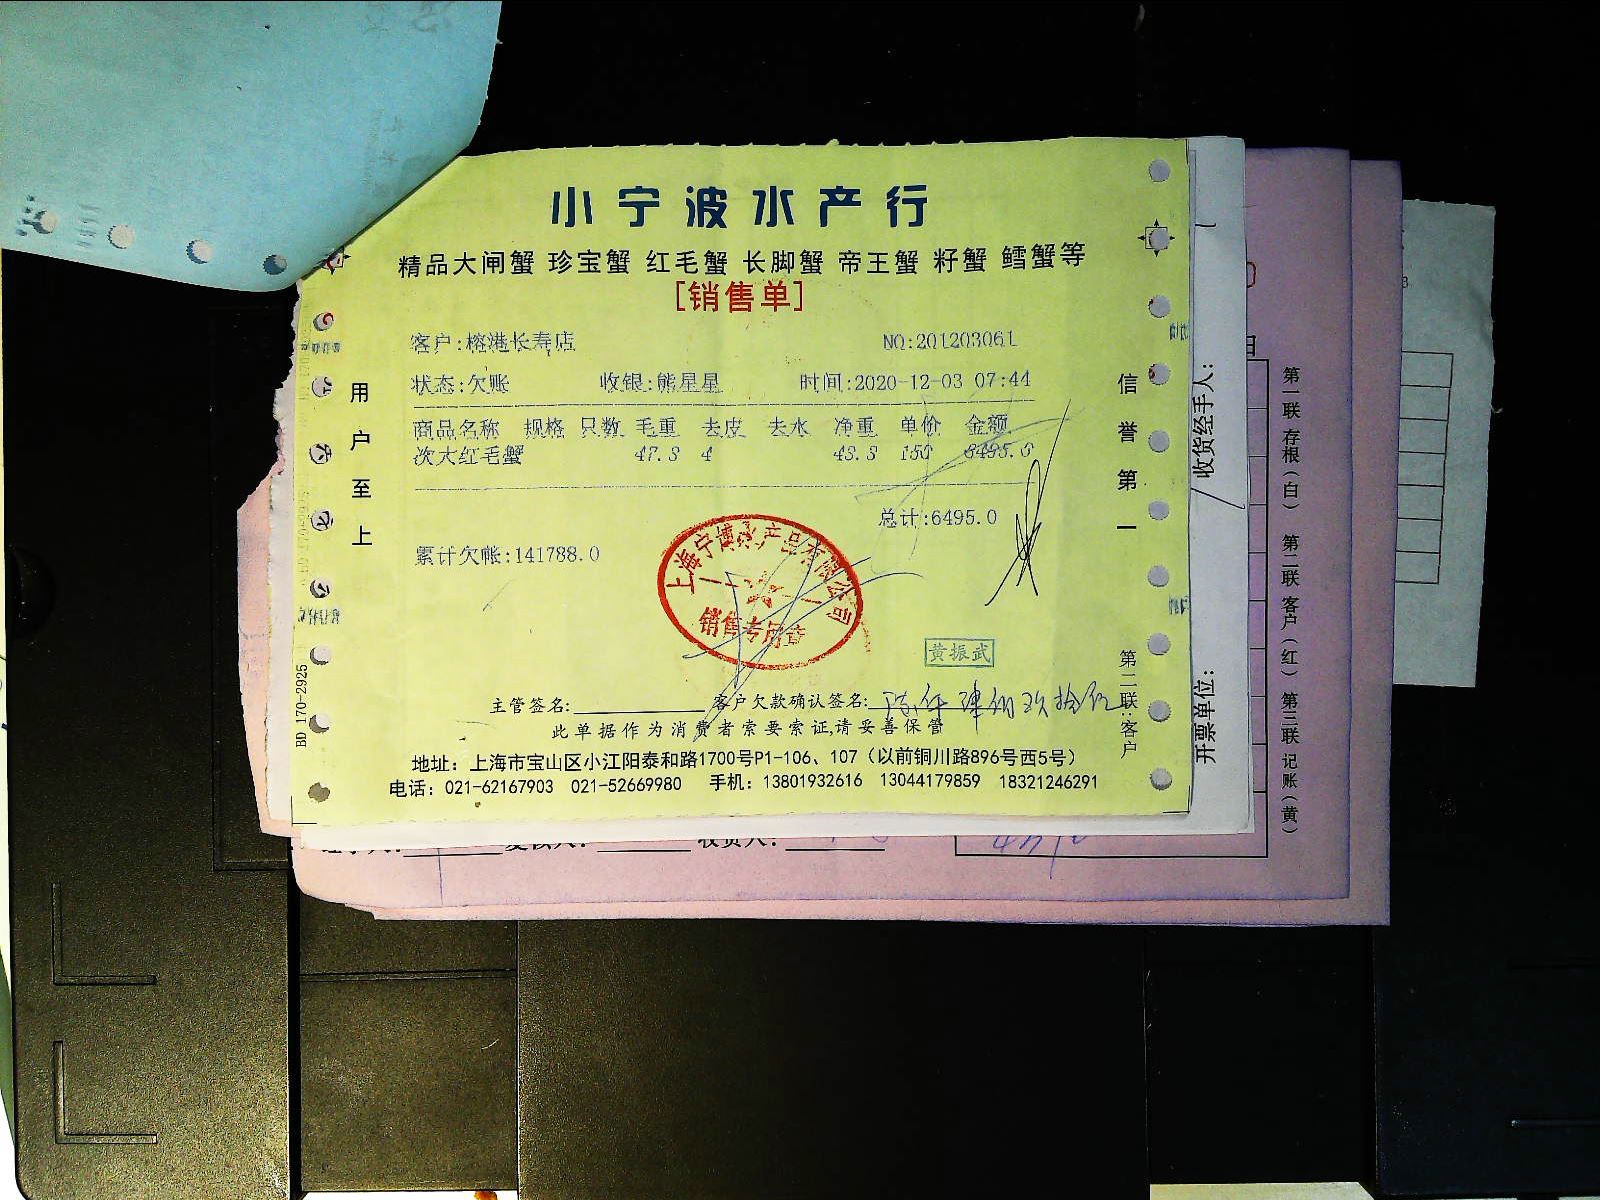 小宁波水产行
精品大闸蟹 珍宝蟹 红毛蟹 长脚蟹 帝王蟹 籽蟹 鳕蟹等
[销售单]
客户:榕港长寿店 NO:201203061
状态:欠账 收银:熊星星 时间:2020-12-03 07:44
商品名称 规格 只数 毛重 去皮 去水 净重 单价 金额
次大红毛蟹 47.3 4 43.3 150 6495.0
总计:6495.0
累计欠帐:141788.0
上海宁博水产品有限公司
销售专用章
黄振武
主管签名: 客户欠款确认签名: 陆仟肆佰玖拾伍
此单据作为消费者索要索证,请妥善保管
地址：上海市宝山区小江阳泰和路1700号P1-106、107（以前铜川路896号西5号）
电话：021-62167903 021-52669980 手机：13801932616 13044179859 18321246291
用户至上
信誉第一
第二联:客户
BD 170-2925
收货经手人:
开票单位:
第一联 存根(白) 第二联 客户(红) 第三联 记账(黄)
收货人: